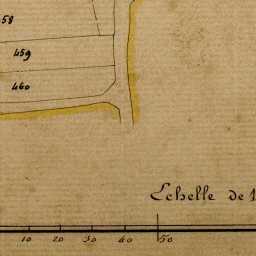 58
459
460
Echelle de 1
10 20 30 40 50